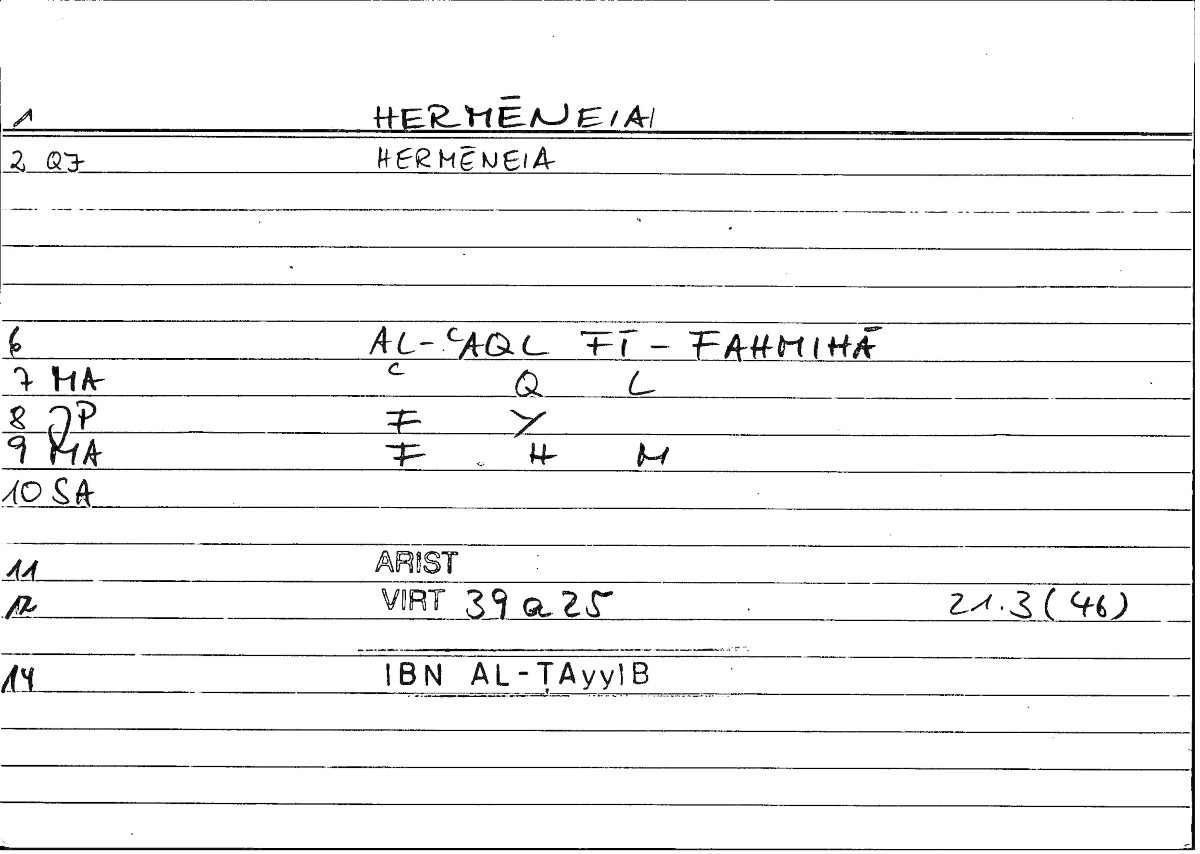 1 HERMĒNEIAI
2 Q7 HERMĒNEIA
6 AL-ʿAQL FĪ-FAHMIHĀ
7 MA ʿ Q L
8 JP F Y
9 MA F H M
10 SA
11 ARIST
12 VIRT 39a25 21.3(46)
14 IBN AL-ṬAyyIB